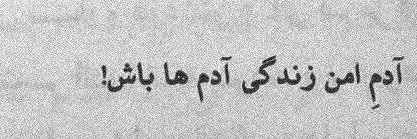 آدمِ امن زندگی آدم ها باش!